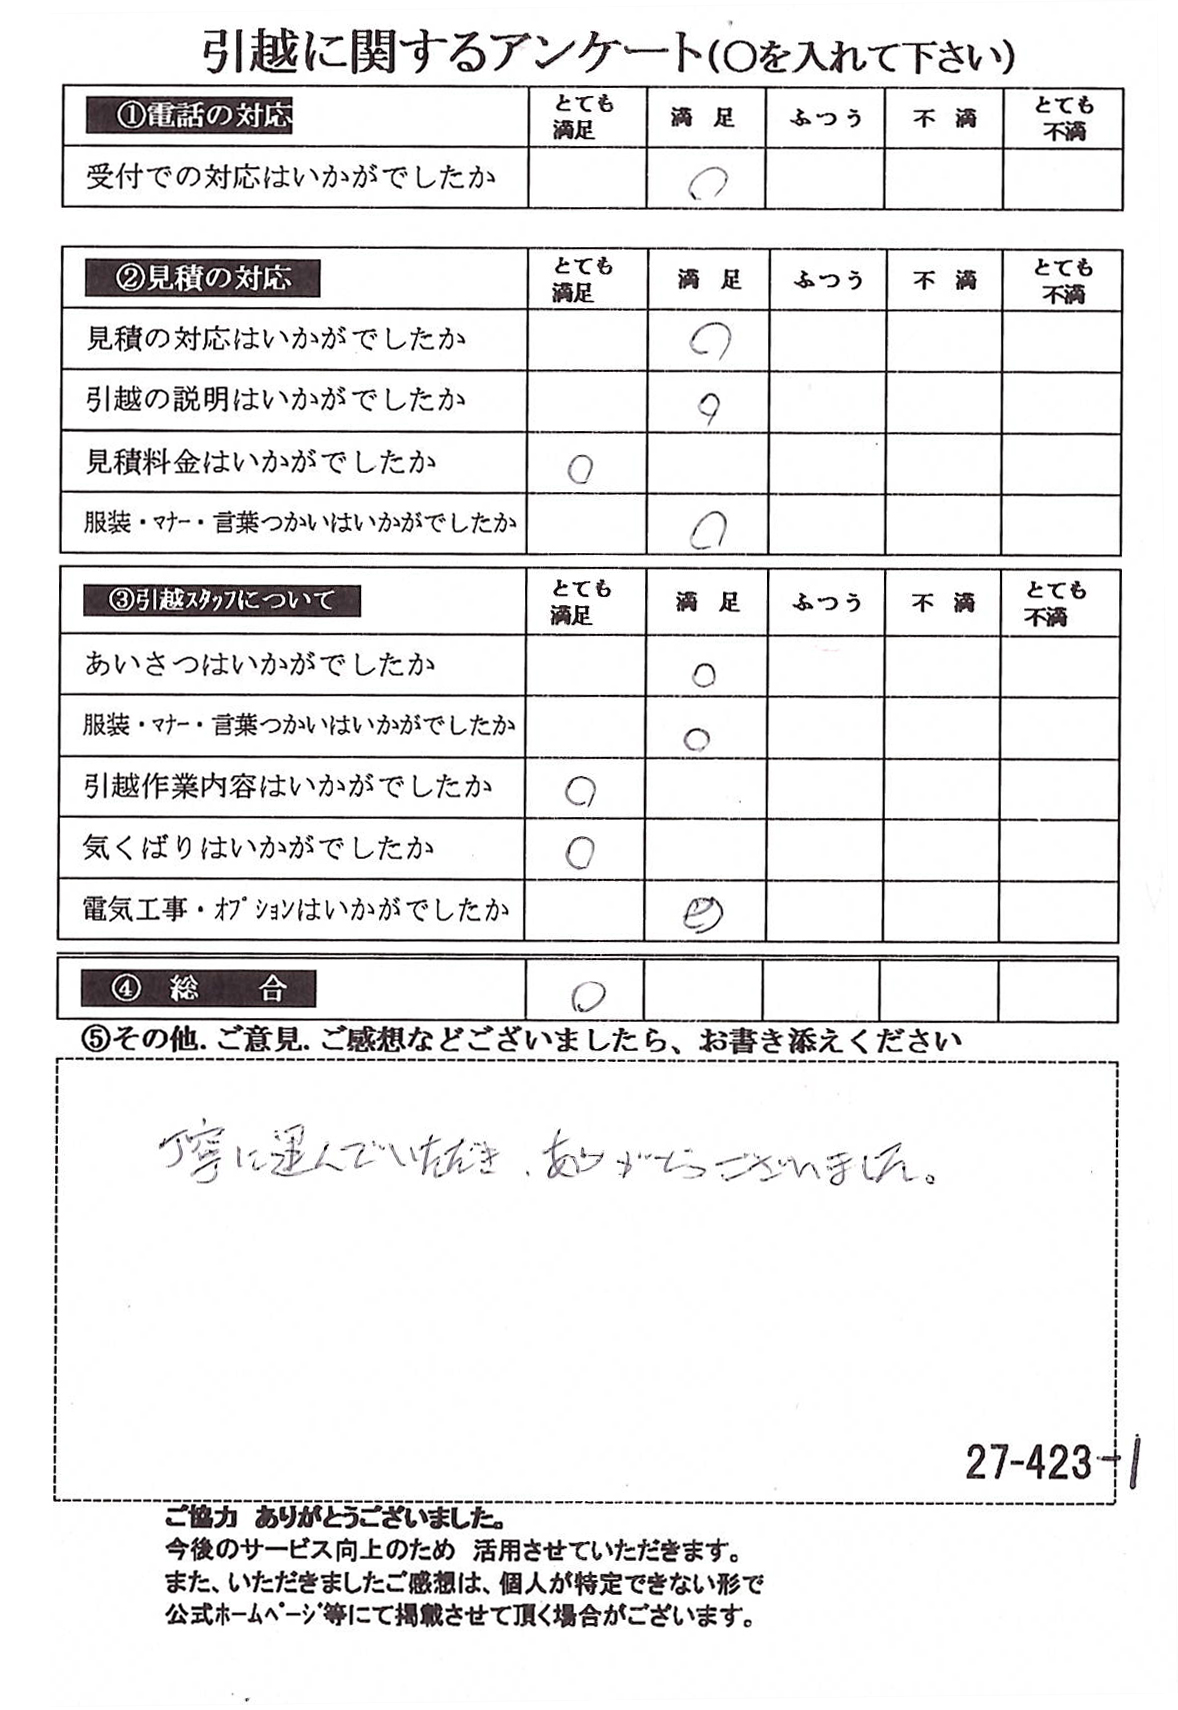 引越に関するアンケート(〇を入れて下さい)
①電話の対応 とても満足 満足 ふつう 不満 とても不満
受付での対応はいかがでしたか ○
②見積の対応 とても満足 満足 ふつう 不満 とても不満
見積の対応はいかがでしたか ○
引越の説明はいかがでしたか ○
見積料金はいかがでしたか ○
服装・マナー・言葉つかいはいかがでしたか ○
③引越スタッフについて とても満足 満足 ふつう 不満 とても不満
あいさつはいかがでしたか ○
服装・マナー・言葉つかいはいかがでしたか ○
引越作業内容はいかがでしたか ○
気くばりはいかがでしたか ○
電気工事・オプションはいかがでしたか ○
④ 総合 ○
⑤その他.ご意見.ご感想などございましたら、お書き添えください
丁寧に運んでいただき、ありがとうございました。
27-423-1
ご協力 ありがとうございました。
今後のサービス向上のため 活用させていただきます。
また、いただきましたご感想は、個人が特定できない形で
公式ホームページ等にて掲載させて頂く場合がございます。